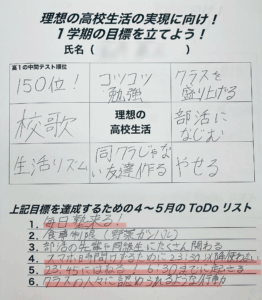 理想の高校生活の実現に向け！
1学期の目標を立てよう！
氏名（　　　　　　）
高1の中間テスト順位
150位！
コツコツ
勉強
クラスを
盛り上げる
校歌
理想の
高校生活
部活に
なじむ
生活リズム
同クラじゃな
い友達作る
やせる
上記目標を達成するための4～5月のToDoリスト
1. 毎日塾来る！
2. 食事制限（野菜ガンバル）
3. 部活の先輩や同級生にたくさん関わる
4. スマホ8時間けすために23:30以降使わない
5. 23:45にはねる！ 6:30までに起きる
6. クラスの人たちに認められるような行動力